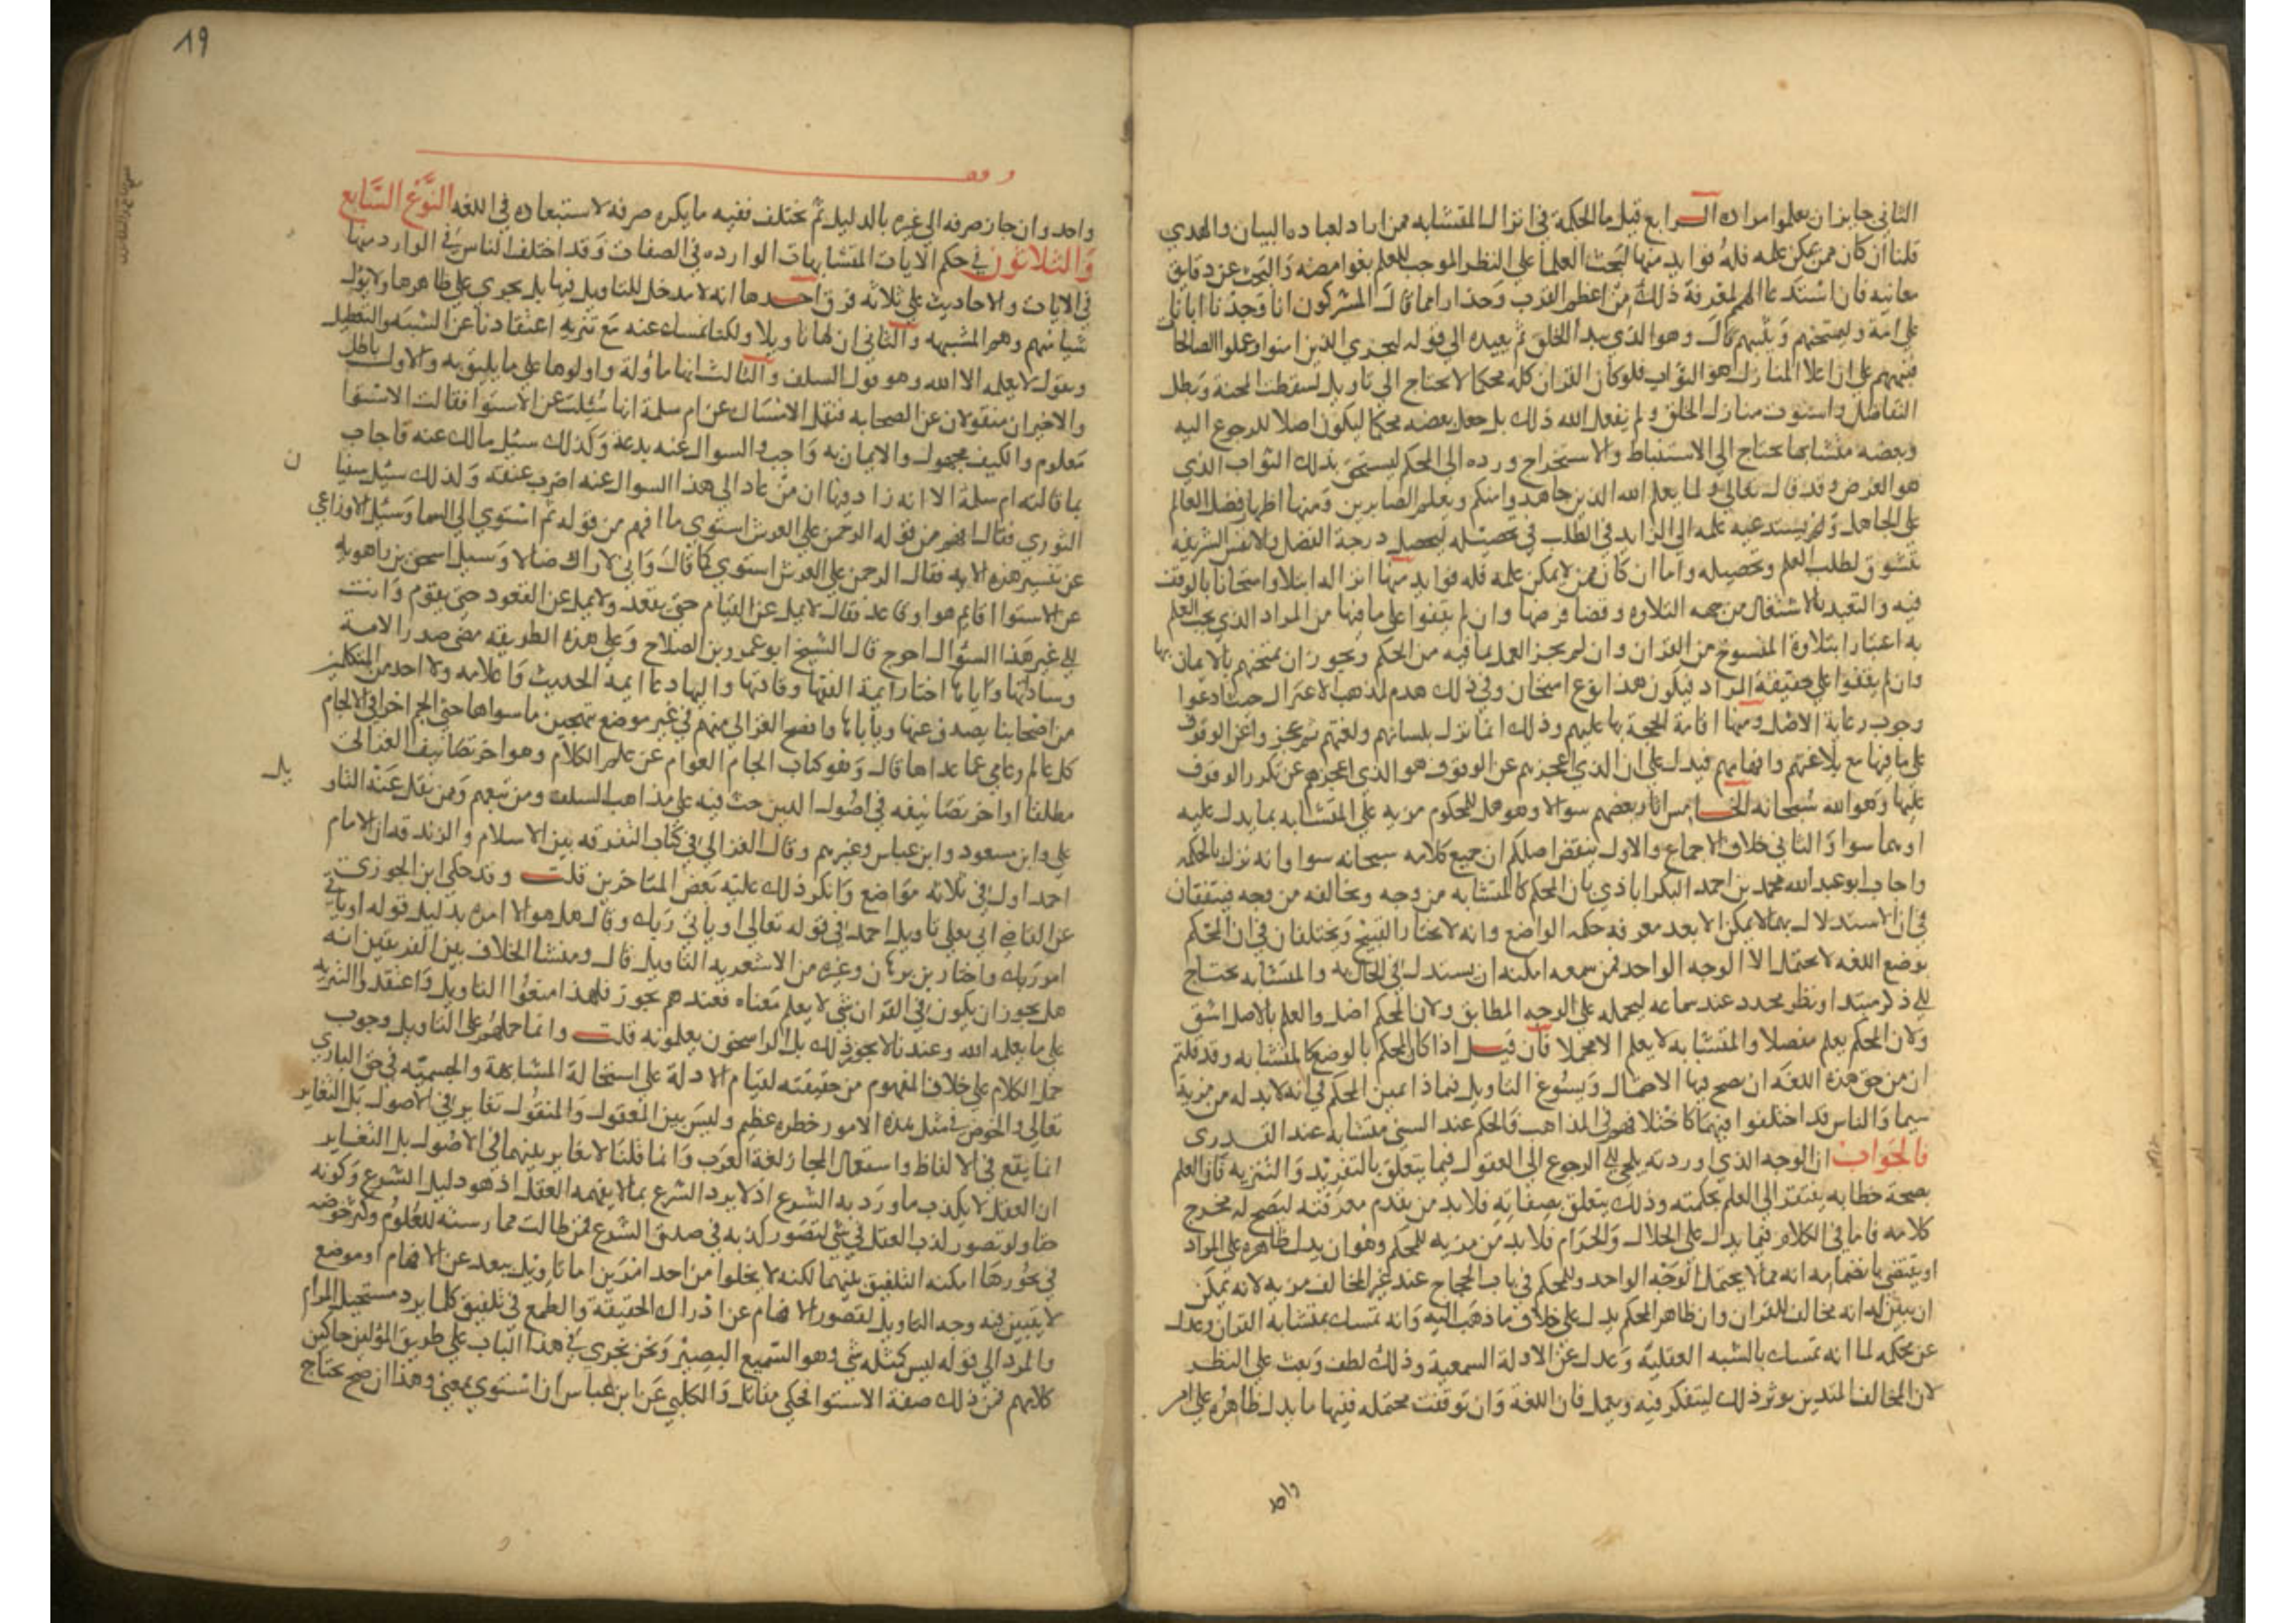 الثاني جايز ان يعلموا مراده الرابع قيل ما الحكمة في انزال المتشابه ممن اراد لعباده البيان والهدي
قلنا ان كان ممن يمكن علمه فله فوايد منها ليحث العلما علي النظر الموجب للعلم بغوامضه والبحث عن دقايق
معانيه فان استدعا الهمم لمعرفة ذلك من اعظم القرب وحذرا مما قال المشركون انا وجدنا اباءنا
علي امة وليمتحنهم ويثيبهم كما قال وهو الذي يبدا الخلق ثم يعيده الي قوله ليجزي الذين امنوا وعملوا الصالحات
فنبههم علي ان اعلا المنازل هو الثواب فلو كان القران كله محكما لا يحتاج الي تاويل لسقطت المحنة وبطل
التفاضل واستوت منازل الخلق ولم يفعل الله ذلك بل جعل بعضه محكما ليكون اصلا للرجوع اليه
وبعضه متشابها يحتاج الي الاستنباط والاستخراج ورده الي المحكم ليستحق بذلك الثواب الذي
هو الغرض وقد قال تعالي ولما يعلم الله الذين جاهدوا منكم ويعلم الصابرين ومنها اظهار فضل العالم
علي الجاهل ويستدعيه علمه الي الزايد في الطلب في تحصيله ليحصل درجة الفضل والانفس الشريفه
تتشوق لطلب العلم وتحصيله واما ان كان ممن لا يمكن علمه فله فوايد منها انزاله ابتلا وامتحانا بالوقف
فيه والتعبد بالاشتغال من جهه التلاوه وقضا فرضها وان لم يقفوا علي ما فيها من المراد الذي يجب العلم
به اعتبارا بتلاوة المنسوخ من القران وان لم يجز العمل بما فيه من الحكم ويجوز ان يمتحنهم بالايمان بها
وان لم يقفوا علي حقيقة المراد فيكون هذا نوع امتحان وفي ذلك هدم لمذهب الاعتزال حيث ادعوا
وجوب رعاية الاصلح ومنها اقامة الحجة بها عليهم وذلك انما نزل بلسانهم ولغتهم ثم عجزوا عن الوقوف
علي ما فيها مع بلاغتهم وافهامهم فيدل علي ان الذي اعجزهم عن الوقوف هو الذي اعجزهم عن تكرر الوقوف
عليها وهو الله سبحانه الخامس اثار بعضهم سوالا وهو هل للمحكم مزيه علي المتشابه بما يدل عليه
او هما سوا والثاني خلاف الاجماع والاول ينقض اصلكم ان جميع كلامه سبحانه سوا وانه نزل بالحكمه
واجاب ابو عبد الله محمد بن احمد البكراباذي بان المحكم كالمتشابه من وجه ويخالفه من وجه فيتفقان
في ان الاستدلال بهما لا يمكن الا بعد معرفه حكمه الواضع وانه لا يختار القبيح ويختلفان في ان المحكم
بوضع اللغه لا يحتمل الا الوجه الواحد فمن سمعه امكنه ان يستدل به في الحال والمتشابه يحتاج
الي ذكر مبتدا ونظر مجدد عند سماعه ليحمله علي الوجه المطابق ولان المحكم اصل والعلم بالاصل اسبق
ولان المحكم يعلم مفصلا والمتشابه لا يعلم الا مجملا فان قيل اذا كان المحكم بالوضع كالمتشابه وقد قلتم
ان من حق هذه اللغه ان يصح فيها الاحتمال ويسوغ التاويل فبماذا يميز المحكم في انه لا بد له من مزية
سيما والناس قد اختلفوا فيهما كاختلافهم في المذاهب فالمحكم عند السني متشابه عند القدري
فالجواب ان الوجه الذي اوردته يلجي الي الرجوع الي العقول فيما يتعلق بالتفريد والتنزيه فان العلم
بصحة خطابه يفتقر الي العلم بحكمته وذلك يتعلق بصفاته فلا بد من تقدم معرفته ليصح له مخرج
كلامه فاما في الكلام فيما يدل علي الحلال والحرام فلا بد من مزيه للمحكم وهو ان يدل ظاهره علي المراد
او يقتضي بانضمامه انه مما لا يحتمل الوجه الواحد وللمحكم في باب الحجاج عند غير المخالف مزيه لانه يمكن
ان يبين له انه مخالف للقران وان ظاهر المحكم يدل علي خلاف ما ذهب اليه وانه تمسك بمتشابه القران وعدل
عن محكمه لما انه تمسك بالشبه العقلية وعدل عن الادلة السمعية وذلك لطف وبعث علي النظر
لان المخالف المتدين يوثر ذلك ليتفكر فيه ويعمل فان اللغة وان توقفت محتمله ففيها ما يدل ظاهره علي امر
واحد
19
وقف
واحد وان جاز صرفه الي غيره بالدليل ثم يختلف ففيه ما يكره صرفه لاستبعاده في اللغه النوع السابع
والثلاثون في حكم الايات المتشابهات الوارده في الصفات وقد اختلف الناس في الوارد منها
في الايات والاحاديث علي ثلاثه فرق احدها انه لا مدخل للتاويل فيها بل يجري علي ظاهرها ولا يؤول
شيا منهم وهم المشبهه والثاني ان لها تاويلا ولكنا نمسك عنه مع تنزيه اعتقادنا عن الشبه والتعطيل
ونقول لا يعلمه الا الله وهو قول السلف والثالث انها ماولة واولوها علي ما يليق به والاول باطل
والاخيران منقولان عن الصحابه فنقل الامساك عن ام سلمة انها سئلت عن الاستوا فقالت الاستوا
معلوم والكيف مجهول والايمان به واجب والسوال عنه بدعة وكذلك سئل مالك عنه فاجاب
بما قالته ام سلمة الا انه زاد فيها ان من عاد الي هذا السوال عنه اضرب عنقه وكذلك سئل سفيان
الثوري فقال افهم من قوله الرحمن علي العرش استوي ما افهم من قوله ثم استوي الي السما وسئل الاوزاعي
عن تفسير هذه الايه فقال الرحمن علي العرش استوي كما قال واني لاراك ضالا وسيل اسحق بن راهويه
عن الاستوا اقايم هو او قاعد فقال لا يمل عن القيام حتي يقعد ولا يمل عن القعود حتي يقوم وانت
الي غير هذا السؤال احوج قال الشيخ ابو عمرو بن الصلاح وعلي هذه الطريقه مضي صدر الامة
وساداتها واياها اختار ايمة الفقها وقادتها واليها دعا ايمه الحديث واعلامه ولا احد من المتكلمين
من اصحابنا يصدف عنها وياباها وافصح الغزالي عنهم في غير موضع بتهجين ما سواها حتي الجم اخرا في الالجام
كل عالم وعامي عما عداها قال وهو كتاب الجام العوام عن علم الكلام وهو اخر تصانيف الغزالي
مطلقا او اخر تصانيفه في اصول الدين حث فيه علي مذاهب السلف ومن تبعهم وممن نقل عنه التاويل
علي وابن مسعود وابن عباس وغيرهم وقال الغزالي في كتاب التفرقه بين الاسلام والزندقه ان الامام
احمد اول في ثلاثه مواضع وانكر ذلك عليه بعض المتاخرين قلت وقد حكي ابن الجوزي
عن القاضي ابي يعلي تاويل احمد في قوله تعالي او ياتي ربك وقال هل هو الا امره بدليل قوله او ياتي
امر ربك واختار بن برهان وغيره من الاشعريه التاويل قال ومنشا الخلاف بين الفريقين انه
هل يجوز ان يكون في القران شي لا يعلم معناه فعندهم يجوز فلهذا منعوا التاويل واعتقدوا التنزيه
علي ما يعلمه الله وعندنا لا يجوز ذلك بل الراسخون يعلمونه قلت وانما حملهم علي التاويل وجوب
حمل الكلام علي خلاف المفهوم من حقيقته لقيام الادلة علي استحالة المشابهة والجسميه في حق الباري
تعالي والخوض في مثل هذه الامور خطره عظيم وليس بين المعقول والمنقول تغاير في الاصول بل التغاير
انما يقع في الالفاظ واستعمال المجاز لغة العرب وانما قلنا لا تغاير بينهما في الاصول بل التغاير
ان العقل لا يكذب ما ورد به الشرع اذ لا يرد الشرع بما لا يفهمه العقل اذ هو دليل الشرع وكونه
حقا ولو تصور كذب العقل في شي لتصور كذبه في صدق الشرع فمن طالت ممارسته للعلوم وكثر خوضه
في بحورها امكنه التلفيق بينهما لكنه لا يخلوا من احد امرين اما تاويل يبعد عن الافهام او موضع
لا يتبين فيه وجه التاويل لقصور الافهام عن ادراك الحقيقة والطمع في تلفيق كلما يرد مستحيل المرام
والمرد الي قوله ليس كمثله شي وهو السميع البصير ونحن نجري في هذا الباب علي طريق المؤلين حاكين
كلامهم فمن ذلك صفة الاستوا فحكي مقاتل والكلبي عن ابن عباس ان استوي بمعني وهذا ان صح يحتاج